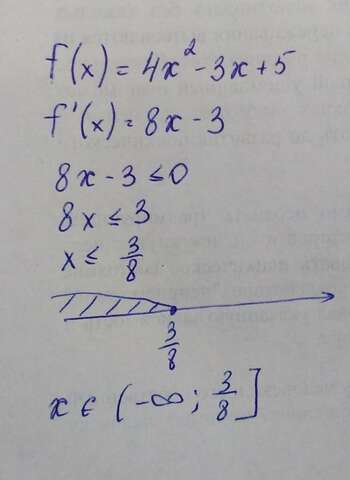 f(x) = 4x² - 3x + 5
f'(x) = 8x - 3
8x - 3 ≤ 0
8x ≤ 3
x ≤ 3/8
3/8
x ∈ (-∞; 3/8]